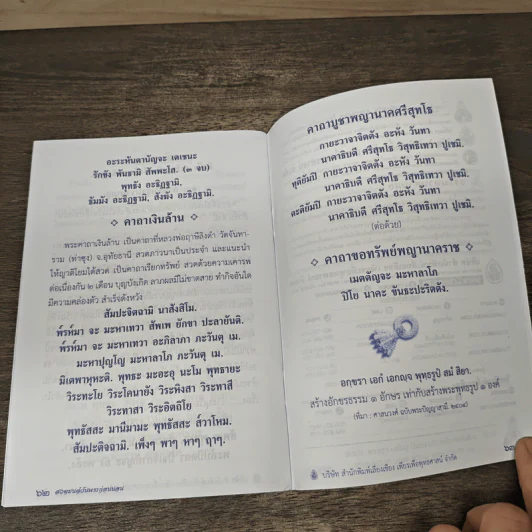 อะระหันตานัญจะ เตเชนะ
รักขัง พันธามิ สัพพะโส. (๓ จบ)
พุทธัง อะธิฏฐามิ,
ธัมมัง อะธิฏฐามิ, สังฆัง อะธิฏฐามิ.
คาถาเงินล้าน
พระคาถาเงินล้าน เป็นคาถาที่หลวงพ่อฤๅษีลิงดำ วัดจันทา-
ราม (ท่าซุง) จ.อุทัยธานี สวดภาวนาเป็นประจำ และแนะนำ
ให้ญาติโยมได้สวด เป็นคาถาเรียกทรัพย์ สวดด้วยความเคารพ
ต่อเนื่องกัน ๒ เดือน บุญบังเกิด ลาภผลมีไม่ขาดสาย ทำกิจอันใด
มีความคล่องตัว สำเร็จดังหวัง
สัมปะจิตฉามิ นาสังสิโม.
พ๎รห๎มา จะ มะหาเทวา สัพเพ ยักขา ปะลายันติ.
พ๎รห๎มา จะ มะหาเทวา อะภิลาภา ภะวันตุ เม.
มะหาปุญโญ มะหาลาโภ ภะวันตุ เม.
มิเตพาหุหะติ. พุทธะ มะอะอุ นะโม พุทธายะ
วิระทะโย วิระโคนายัง วิระหิงสา วิระทาสี
วิระทาสา วิระอิตถิโย
พุทธัสสะ มานีมามะ พุทธัสสะ ส๎วาโหม.
สัมปะติจฉามิ. เพ็งๆ พาๆ หาๆ ฤาๆ.
๖๒
คาถาบูชาพญานาคศรีสุทโธ
กายะวาจาจิตตัง อะหัง วันทา
นาคาธิบดี ศรีสุทโธ วิสุทธิเทวา ปูเชมิ.
ทุติยัมปิ กายะวาจาจิตตัง อะหัง วันทา
นาคาธิบดี ศรีสุทโธ วิสุทธิเทวา ปูเชมิ.
ตะติยัมปิ กายะวาจาจิตตัง อะหัง วันทา
นาคาธิบดี ศรีสุทโธ วิสุทธิเทวา ปูเชมิ.
(ต่อด้วย)
คาถาขอทรัพย์พญานาคราช
เมตตัญจะ มะหาลาโภ
ปิโย นาคะ ขันธะปะริตตัง.
อกฺขรา เอกํ เอกญฺจ พุทฺธรูปํ สมํ สิยา.
สร้างอักขรธรรม ๑ อักษร เท่ากับสร้างพระพุทธรูป ๑ องค์
(ที่มา : ศาสนวงศ์ ฉบับพระปัญญาสามี ๒๔๐๔)
บริษัท สำนักพิมพ์เลี่ยงเชียง เพียรเพื่อพุทธศาสน์ จำกัด